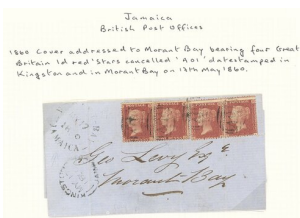 Jamaica
British Post Offices
1860 Cover addressed to Morant Bay bearing four Great
Britain 1d red 'Stars cancelled 'A01' datestamped in
Kingston and in Morant Bay on 17th May 1860.
JAMAICA
Geo Levy Esqr
Morant Bay